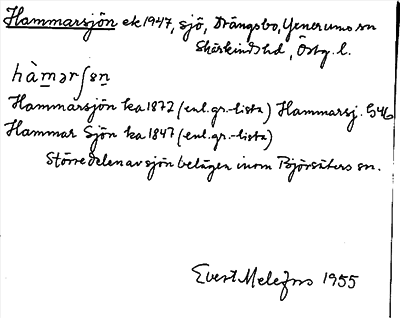 Hammarsjön ek 1947, sjö, Drängsbo, Yxnerums sn
Skärkinds hd, Östg. l.
hàmərʃən
Hammarsjön ka 1872 (enl. gr.-lista) Hammarsj. G46
Hammar Sjön ka 1847 (enl. gr.-lista)
Större delen av sjön belägen inom Björsäters sn.
Evert Melefors 1955